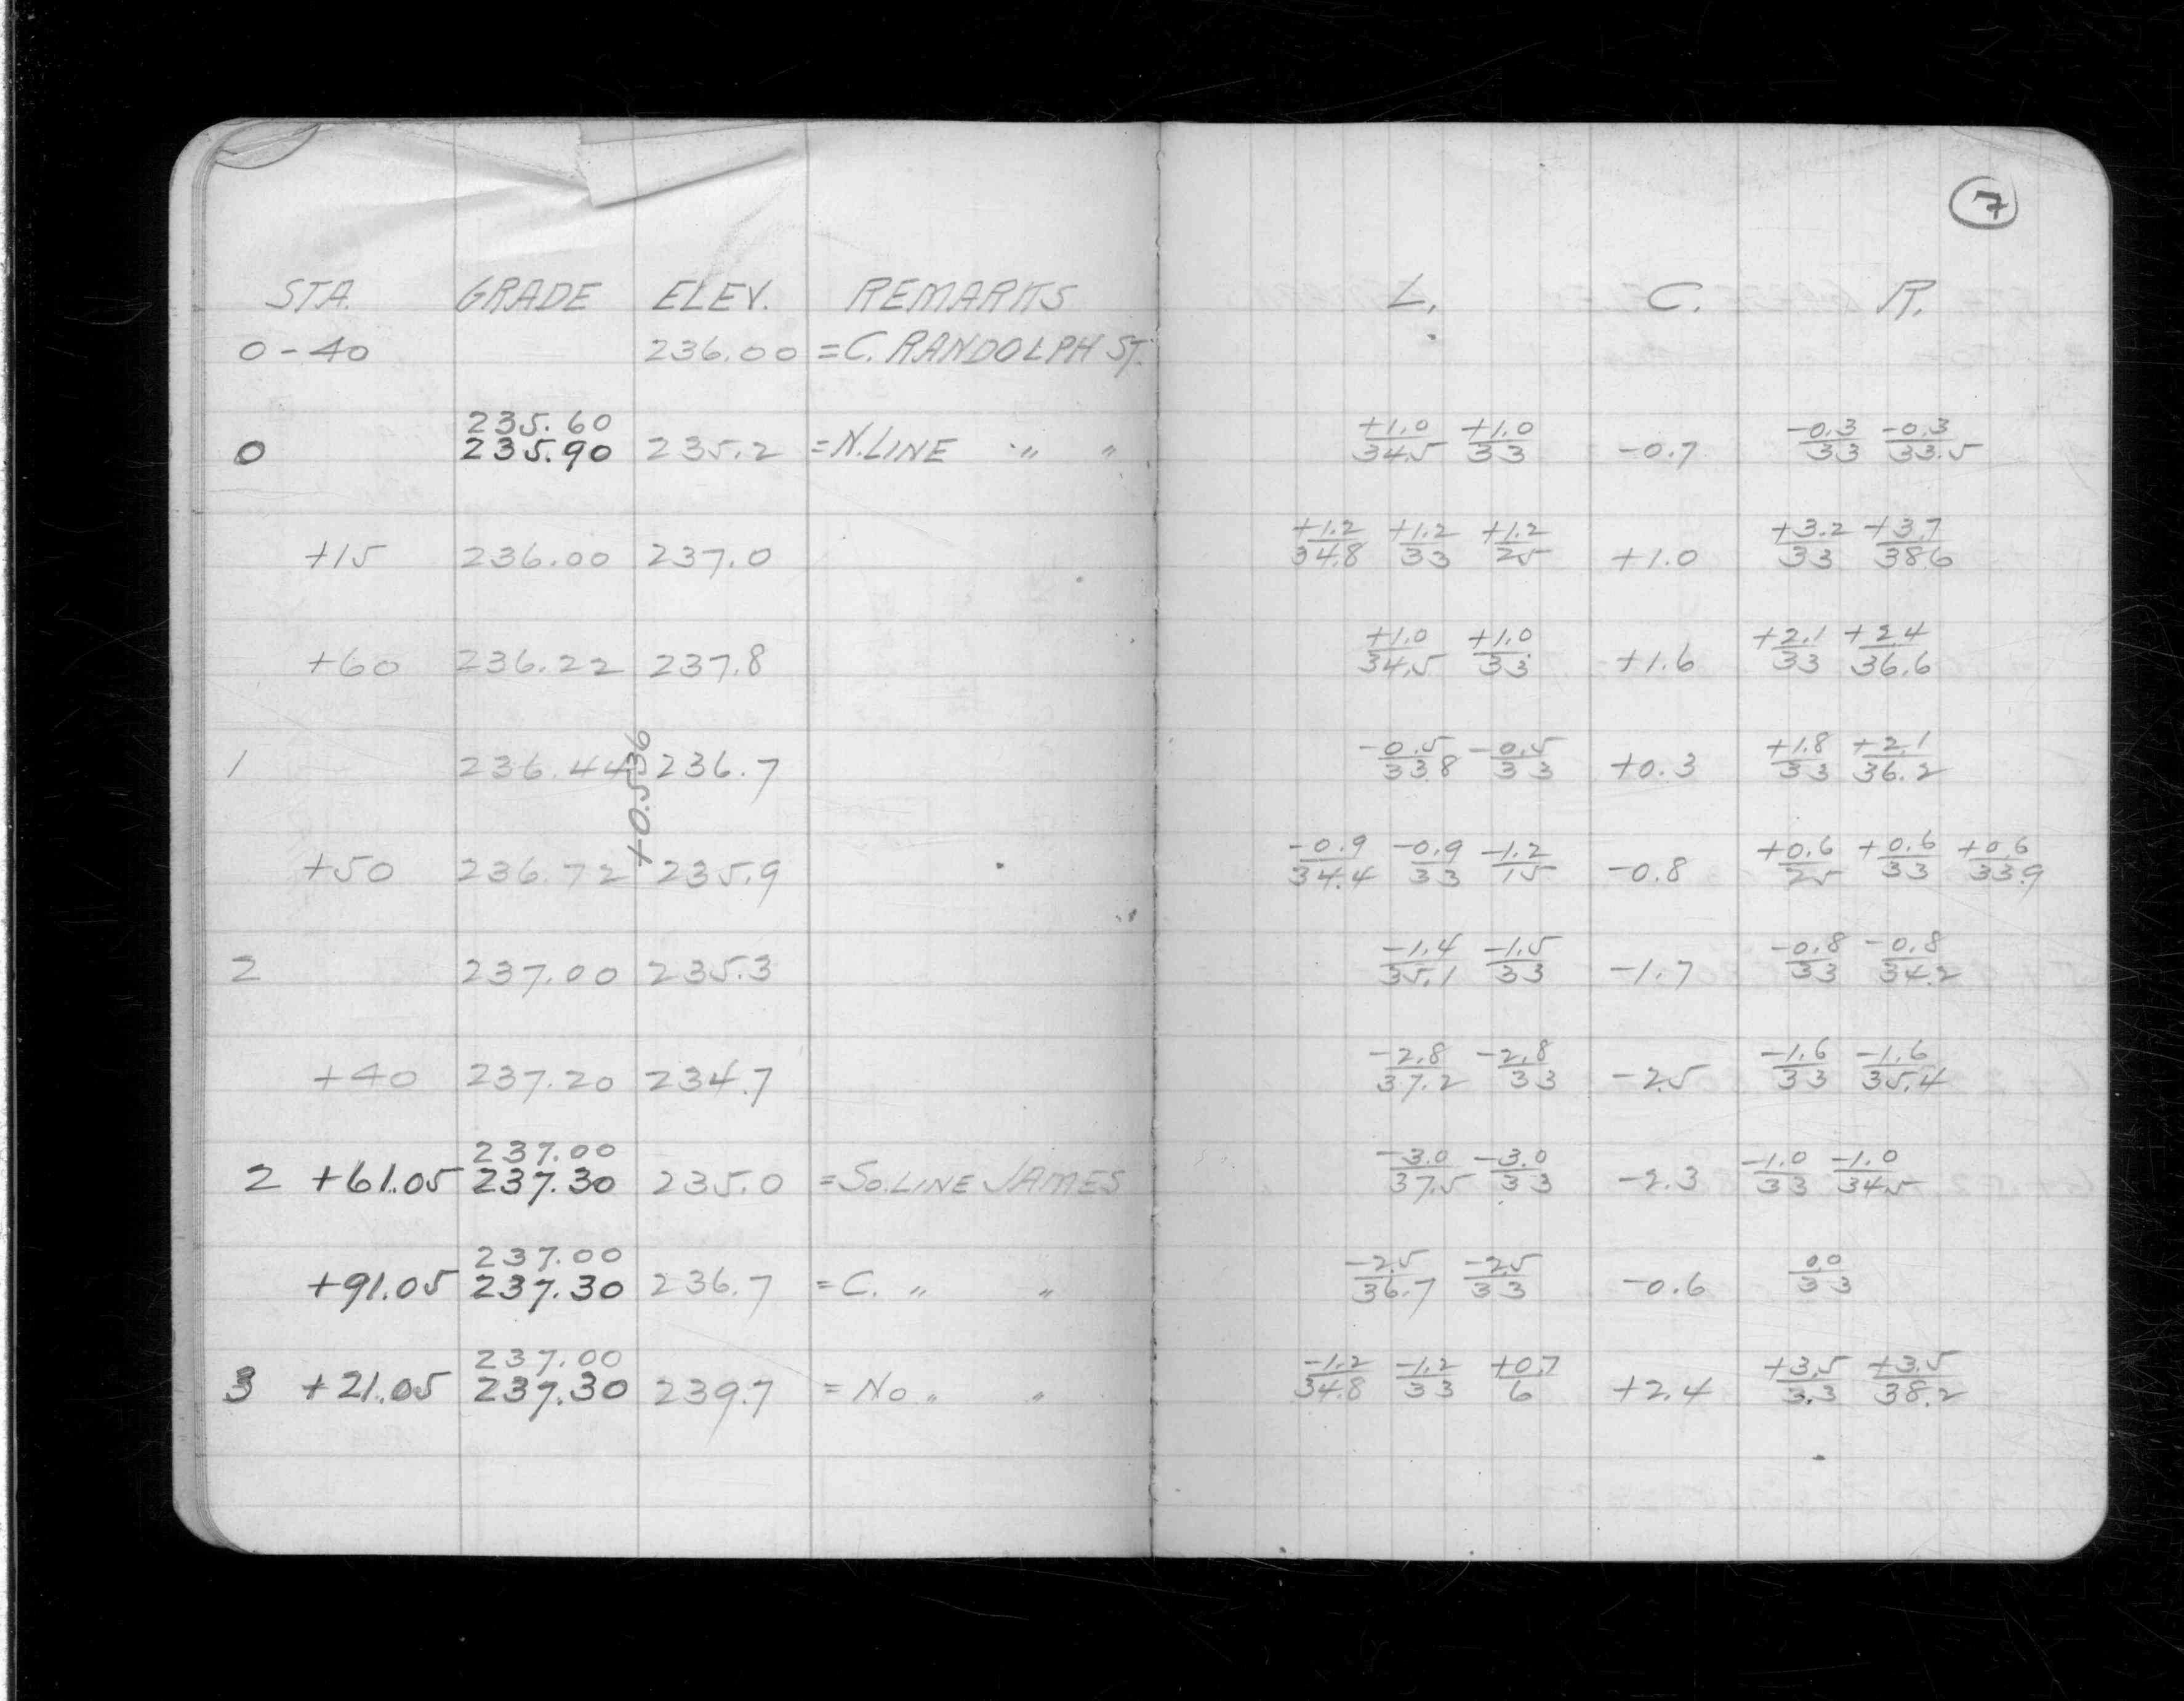 7
STA. GRADE ELEV. REMARKS L. C. R.
0-40 236.00 =C. RANDOLPH ST.
235.60
0 235.90 235.2 =N. LINE " " +1.0/34.5 +1.0/33 -0.7 -0.3/33 -0.3/33.5
+15 236.00 237.0 +1.2/34.8 +1.2/33 +1.2/25 +1.0 +3.2/33 +3.7/38.6
+60 236.22 237.8 +1.0/34.5 +1.0/33 +1.6 +2.1/33 +2.4/36.6
1 236.44 236.7 -0.5/33.8 -0.5/33 +0.3 +1.8/33 +2.1/36.2
+0.536
+50 236.72 235.9 -0.9/34.4 -0.9/33 -1.2/15 -0.8 +0.6/25 +0.6/33 +0.6/33.9
2 237.00 235.3 -1.4/35.1 -1.5/33 -1.7 -0.8/33 -0.8/34.2
+40 237.20 234.7 -2.8/37.2 -2.8/33 -2.5 -1.6/33 -1.6/35.4
237.00
2 +61.05 237.30 235.0 =So. LINE JAMES -3.0/37.5 -3.0/33 -2.3 -1.0/33 -1.0/34.5
237.00
+91.05 237.30 236.7 =C. " " -2.5/36.7 -2.5/33 -0.6 0.0/33
237.00
3 +21.05 237.30 239.7 =No. " " -1.2/34.8 -1.2/33 +0.7/6 +2.4 +3.5/33 +3.5/38.2